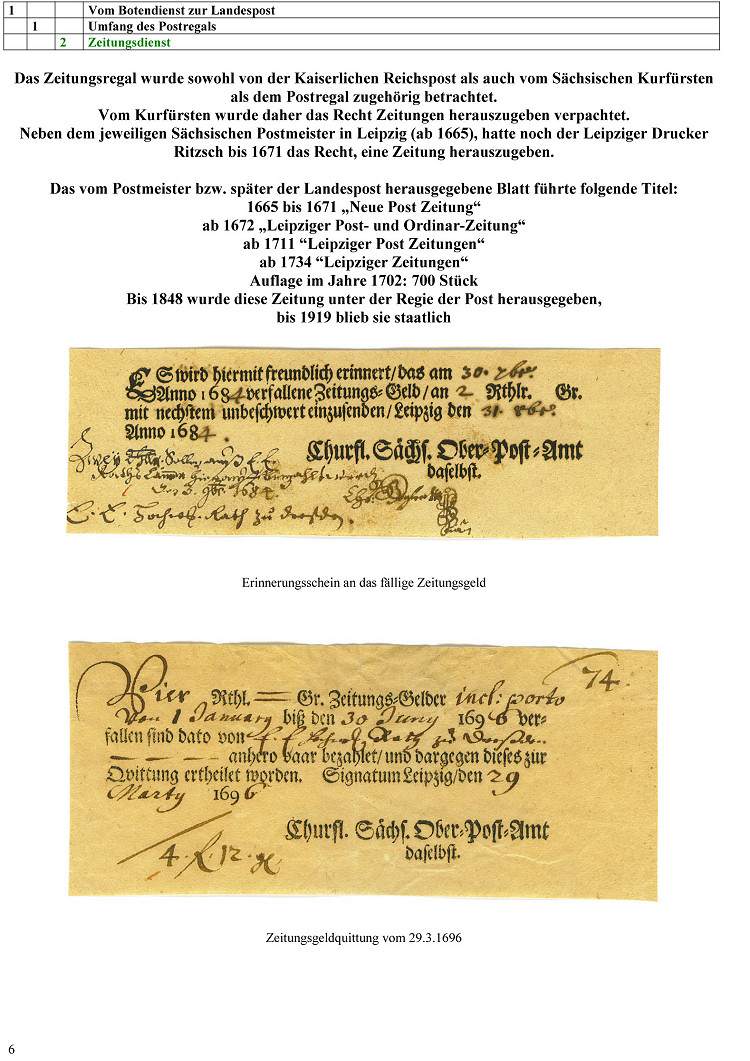 1 Vom Botendienst zur Landespost
1 Umfang des Postregals
2 Zeitungsdienst
Das Zeitungsregal wurde sowohl von der Kaiserlichen Reichspost als auch vom Sächsischen Kurfürsten
als dem Postregal zugehörig betrachtet.
Vom Kurfürsten wurde daher das Recht Zeitungen herauszugeben verpachtet.
Neben dem jeweiligen Sächsischen Postmeister in Leipzig (ab 1665), hatte noch der Leipziger Drucker
Ritzsch bis 1671 das Recht, eine Zeitung herauszugeben.
Das vom Postmeister bzw. später der Landespost herausgegebene Blatt führte folgende Titel:
1665 bis 1671 „Neue Post Zeitung“
ab 1672 „Leipziger Post- und Ordinar-Zeitung“
ab 1711 “Leipziger Post Zeitungen“
ab 1734 “Leipziger Zeitungen“
Auflage im Jahre 1702: 700 Stück
Bis 1848 wurde diese Zeitung unter der Regie der Post herausgegeben,
bis 1919 blieb sie staatlich
ES wird hiermit freundlich erinnert/das am 30. 
Anno 1684 verfallene Zeitungs-Geld/an 2 Rthlr. Gr.
mit nechstem unbeschwert einzusenden/Leipzig den 31.
Anno 1684.
Churfl. Sächs. Ober-Post-Amt
daselbst.
1684.
Rath zu Dresden.
Erinnerungsschein an das fällige Zeitungsgeld
74.
Vier Rthl. Gr. Zeitungs-Gelder incl: porto
Von 1 January biß den 30 Juny 1696 ver-
fallen sind dato von Rath zu Dresden
anhero baar bezahlet/und dargegen dieses zur
Qvittung ertheilet worden. Signatum Leipzig/den 29
Marty 1696
Churfl. Sächs. Ober-Post-Amt
daselbst.
4. 12.
Zeitungsgeldquittung vom 29.3.1696
6